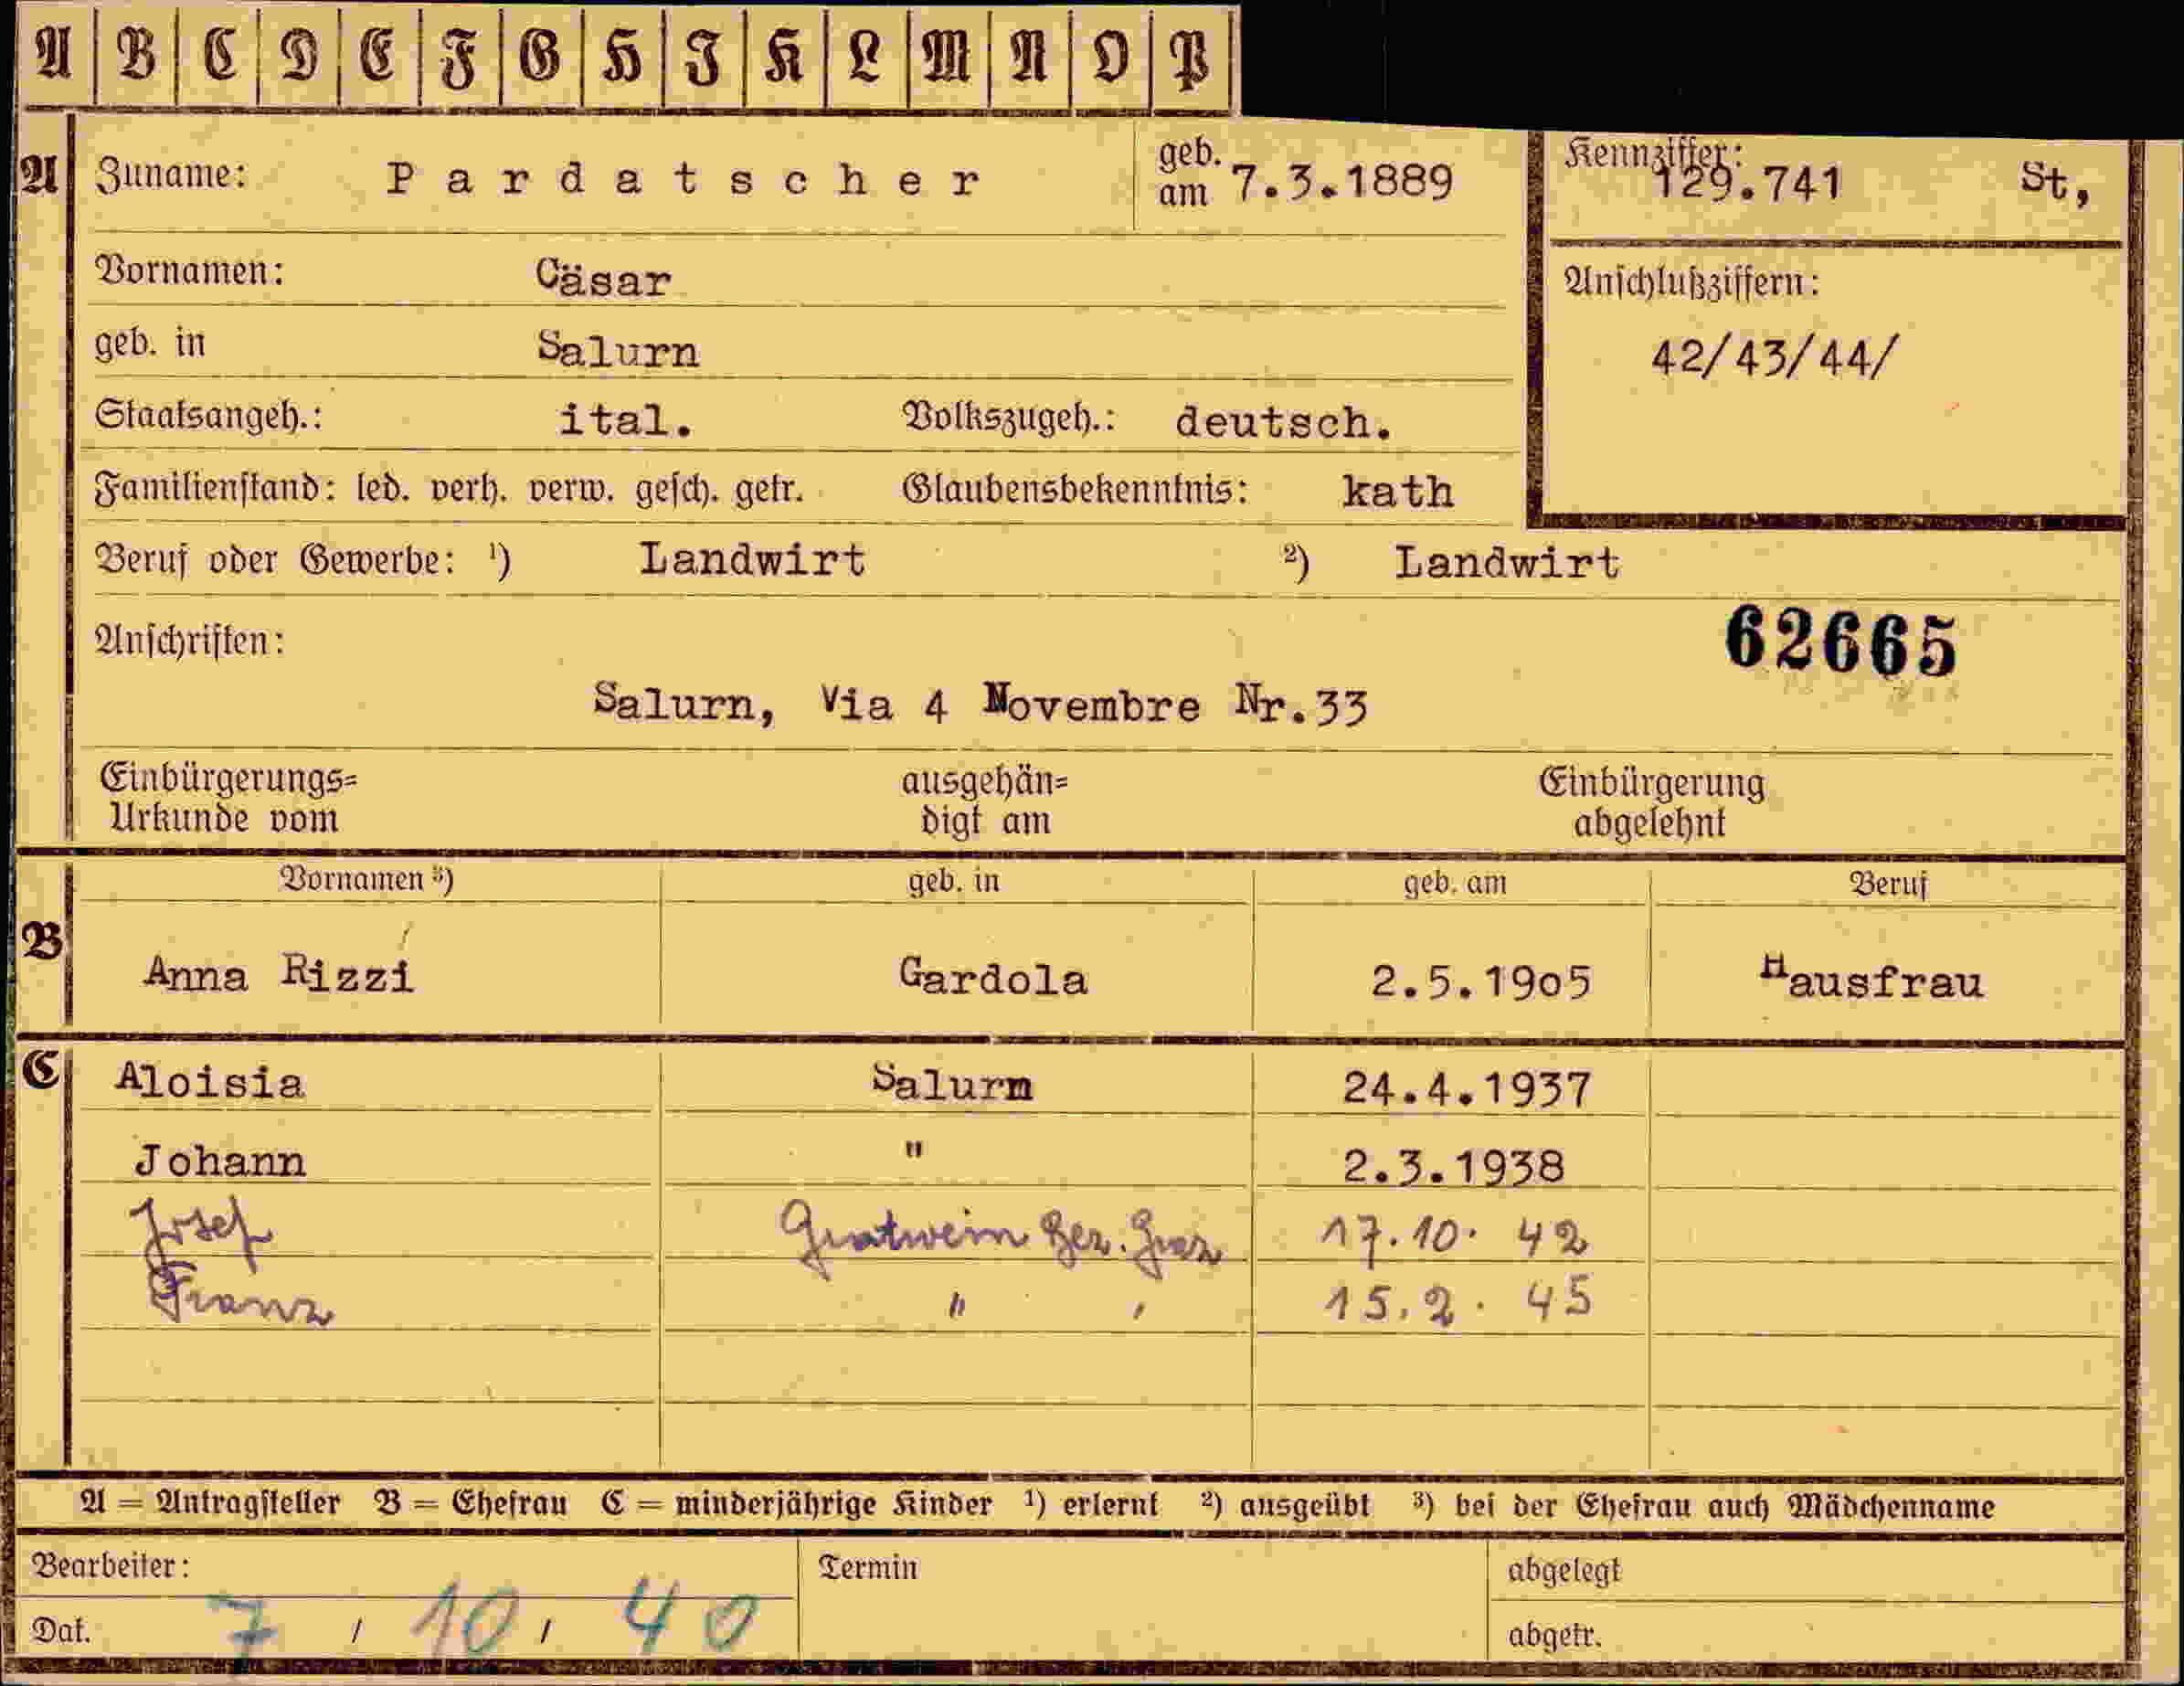 A B C D E F G H I K L M N O P
A Zuname: Pardatscher geb. am 7.3.1889 Kennziffer: 129.741 St,
Vornamen: Cäsar Anschlußziffern:
geb. in Salurn 42/43/44/
Staatsangeh.: ital. Volkszugeh.: deutsch.
Familienstand: led. verh. verw. gesch. getr. Glaubensbekenntnis: kath
Beruf oder Gewerbe: ¹) Landwirt ²) Landwirt
Anschriften: 62665
Salurn, Via 4 Novembre Nr.33
Einbürgerungs= ausgehän= Einbürgerung
Urkunde vom digt am abgelehnt
Vornamen ³) geb. in geb. am Beruf
B Anna Rizzi Gardola 2.5.1905 Hausfrau
C Aloisia Salurn 24.4.1937
Johann " 2.3.1938
Josef Gratwein Bez. Graz 17.10. 42
Franz " " 15.2. 45
A = Antragsteller B = Ehefrau C = minderjährige Kinder ¹) erlernt ²) ausgeübt ³) bei der Ehefrau auch Mädchenname
Bearbeiter: Termin abgelegt
Dat. 7 / 10 / 40 abgetr.